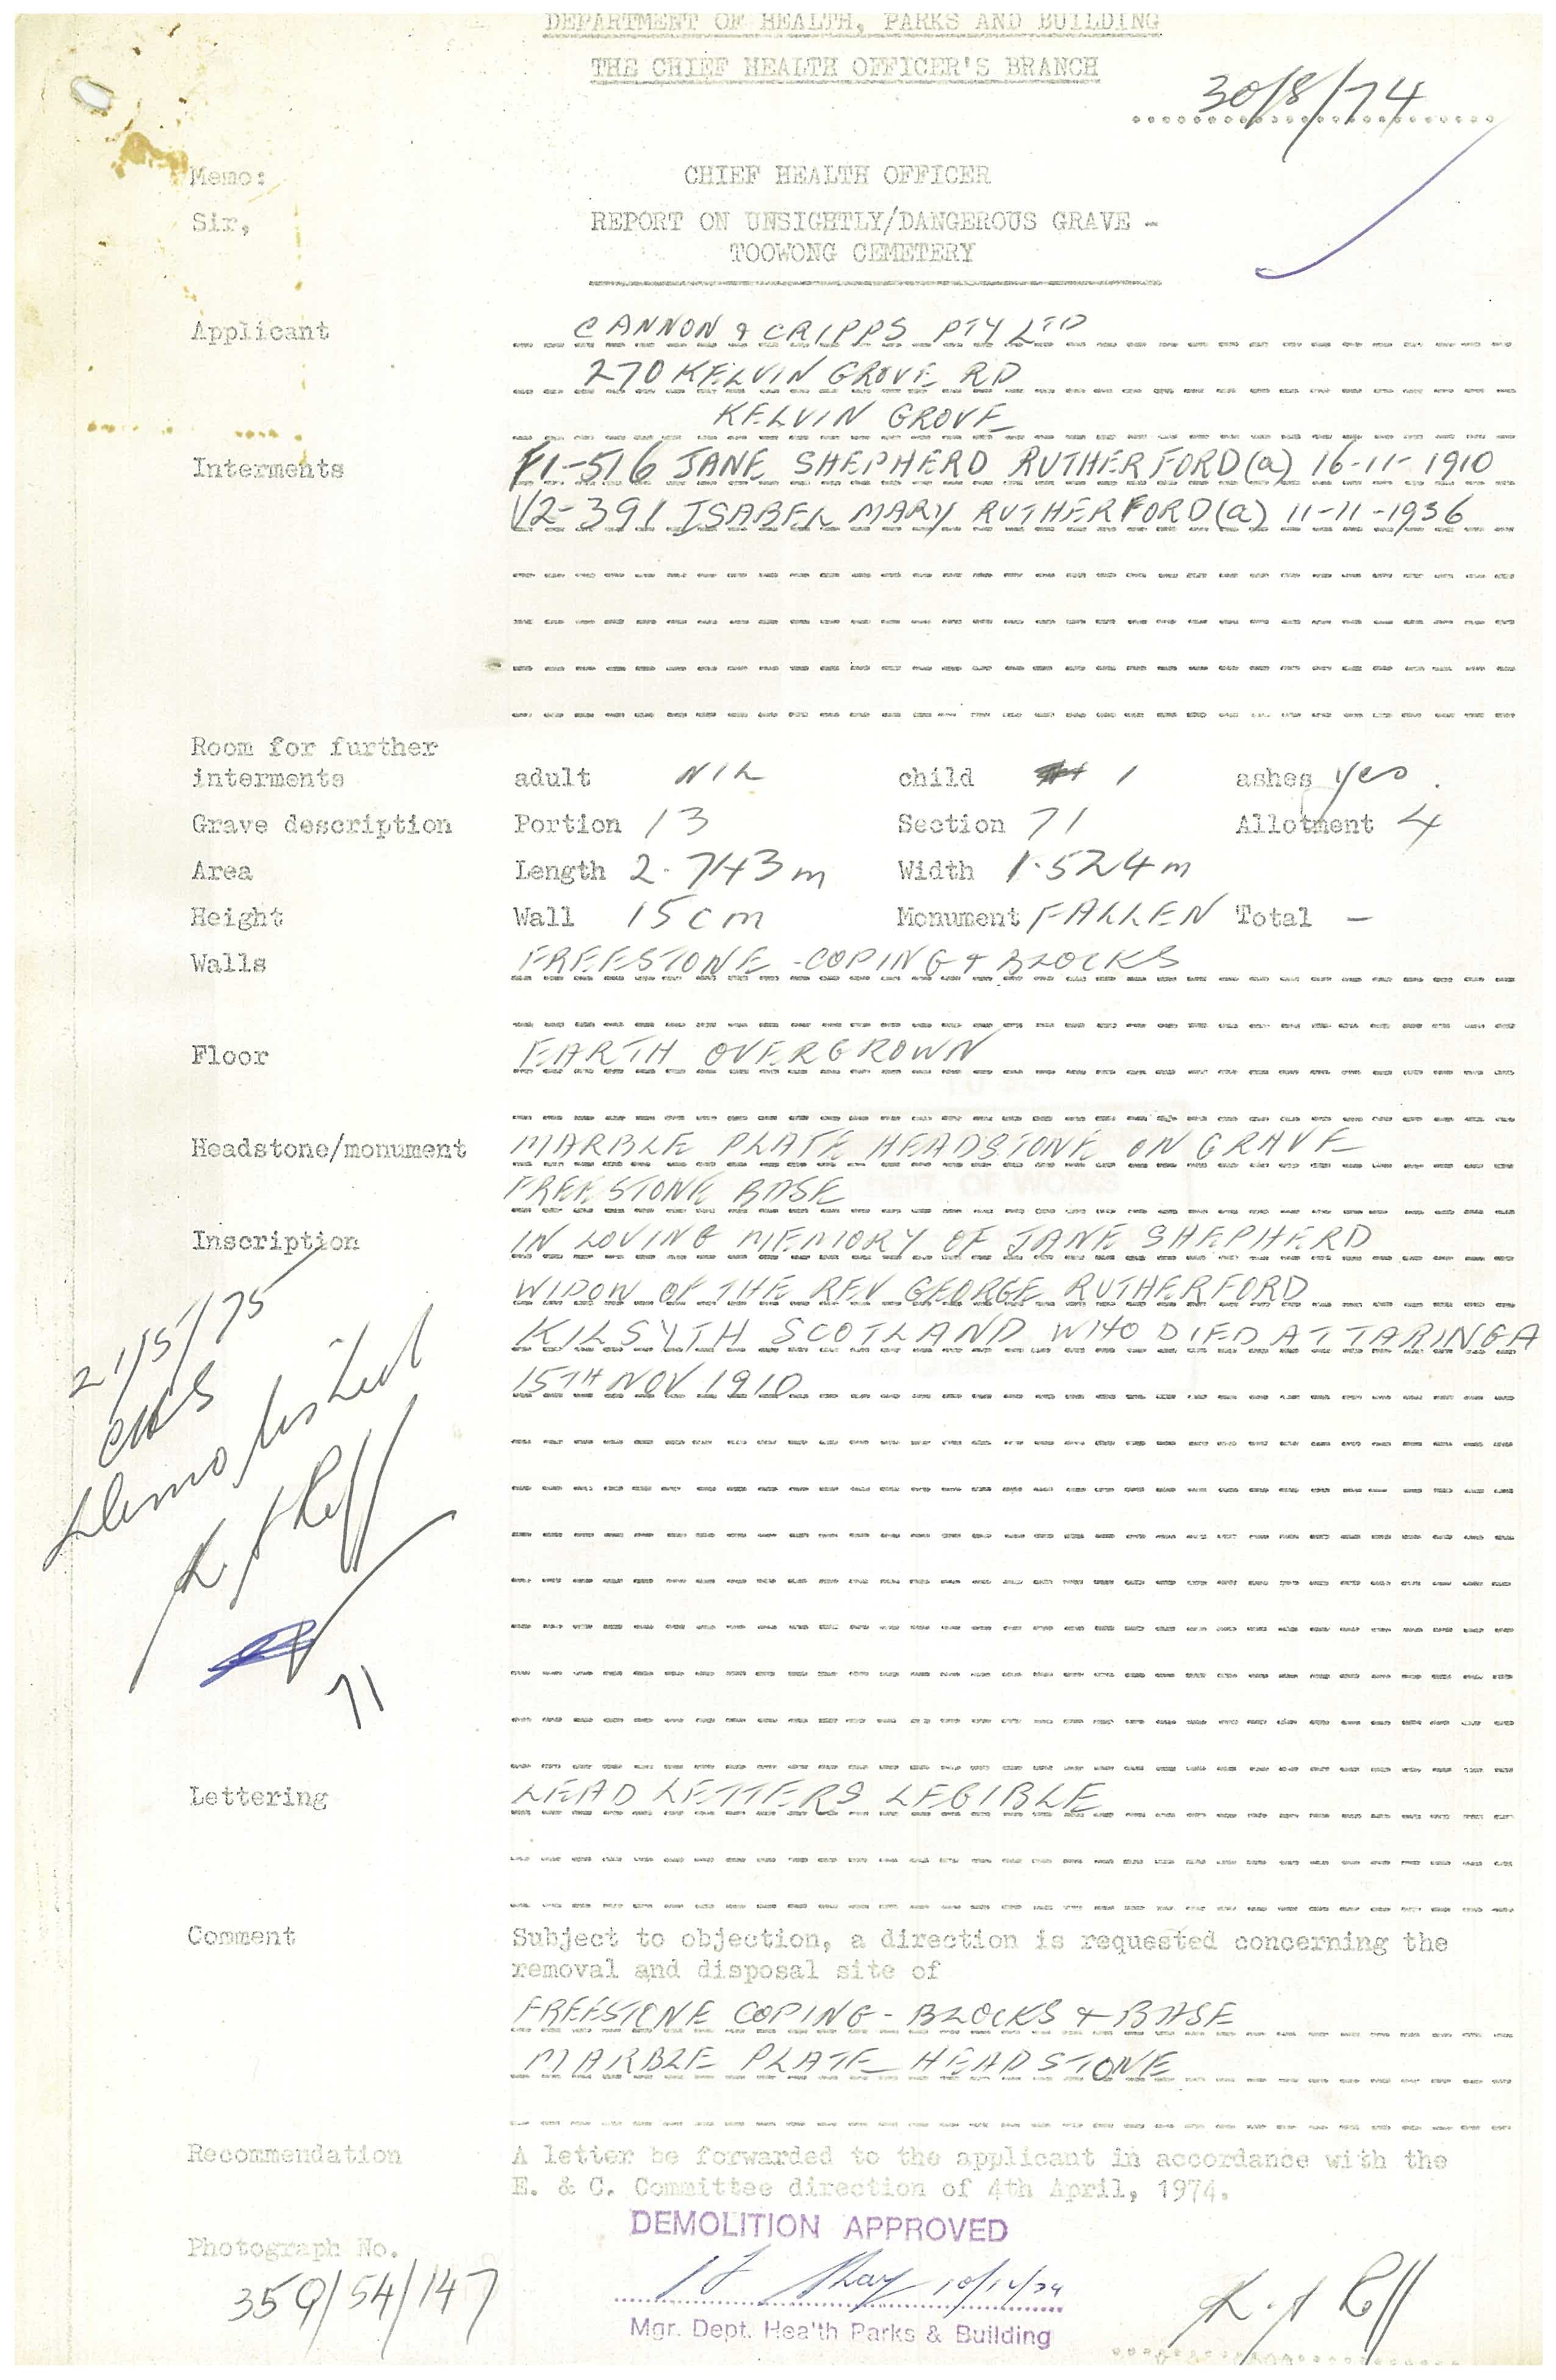 DEPARTMENT OF HEALTH, PARKS AND BUILDING
THE CHIEF HEALTH OFFICER'S BRANCH
30/8/74
Memo: CHIEF HEALTH OFFICER
Sir, REPORT ON UNSIGHTLY/DANGEROUS GRAVE -
TOOWONG CEMETERY
Applicant CANNON & CRIPPS PTY LTD
270 KELVIN GROVE RD
KELVIN GROVE
Interments V1-516 JANE SHEPHERD RUTHERFORD (a) 16-11-1910
V2-391 ISABEL MARY RUTHERFORD (a) 11-11-1936
Room for further
interments adult NIL child 1 ashes yes.
Grave description Portion 13 Section 71 Allotment 4
Area Length 2.743m Width 1.524m
Height Wall 15cm Monument FALLEN Total -
Walls FREESTONE - COPING & BLOCKS
Floor EARTH OVERGROWN
Headstone/monument MARBLE PLATE HEADSTONE ON GRAVE
FREESTONE BASE
Inscription IN LOVING MEMORY OF JANE SHEPHERD
WIDOW OF THE REV GEORGE RUTHERFORD
KILSYTH SCOTLAND WHO DIED AT TARINGA
15TH NOV 1910
21/5/75
demolished
71
Lettering LEAD LETTERS LEGIBLE
Comment Subject to objection, a direction is requested concerning the
removal and disposal site of
FREESTONE COPING - BLOCKS & BASE
MARBLE PLATE HEADSTONE
Recommendation A letter be forwarded to the applicant in accordance with the
E. & C. Committee direction of 4th April, 1974.
DEMOLITION APPROVED
Photograph No.
359/54/147
10/12/74
Mgr. Dept. Health Parks & Building